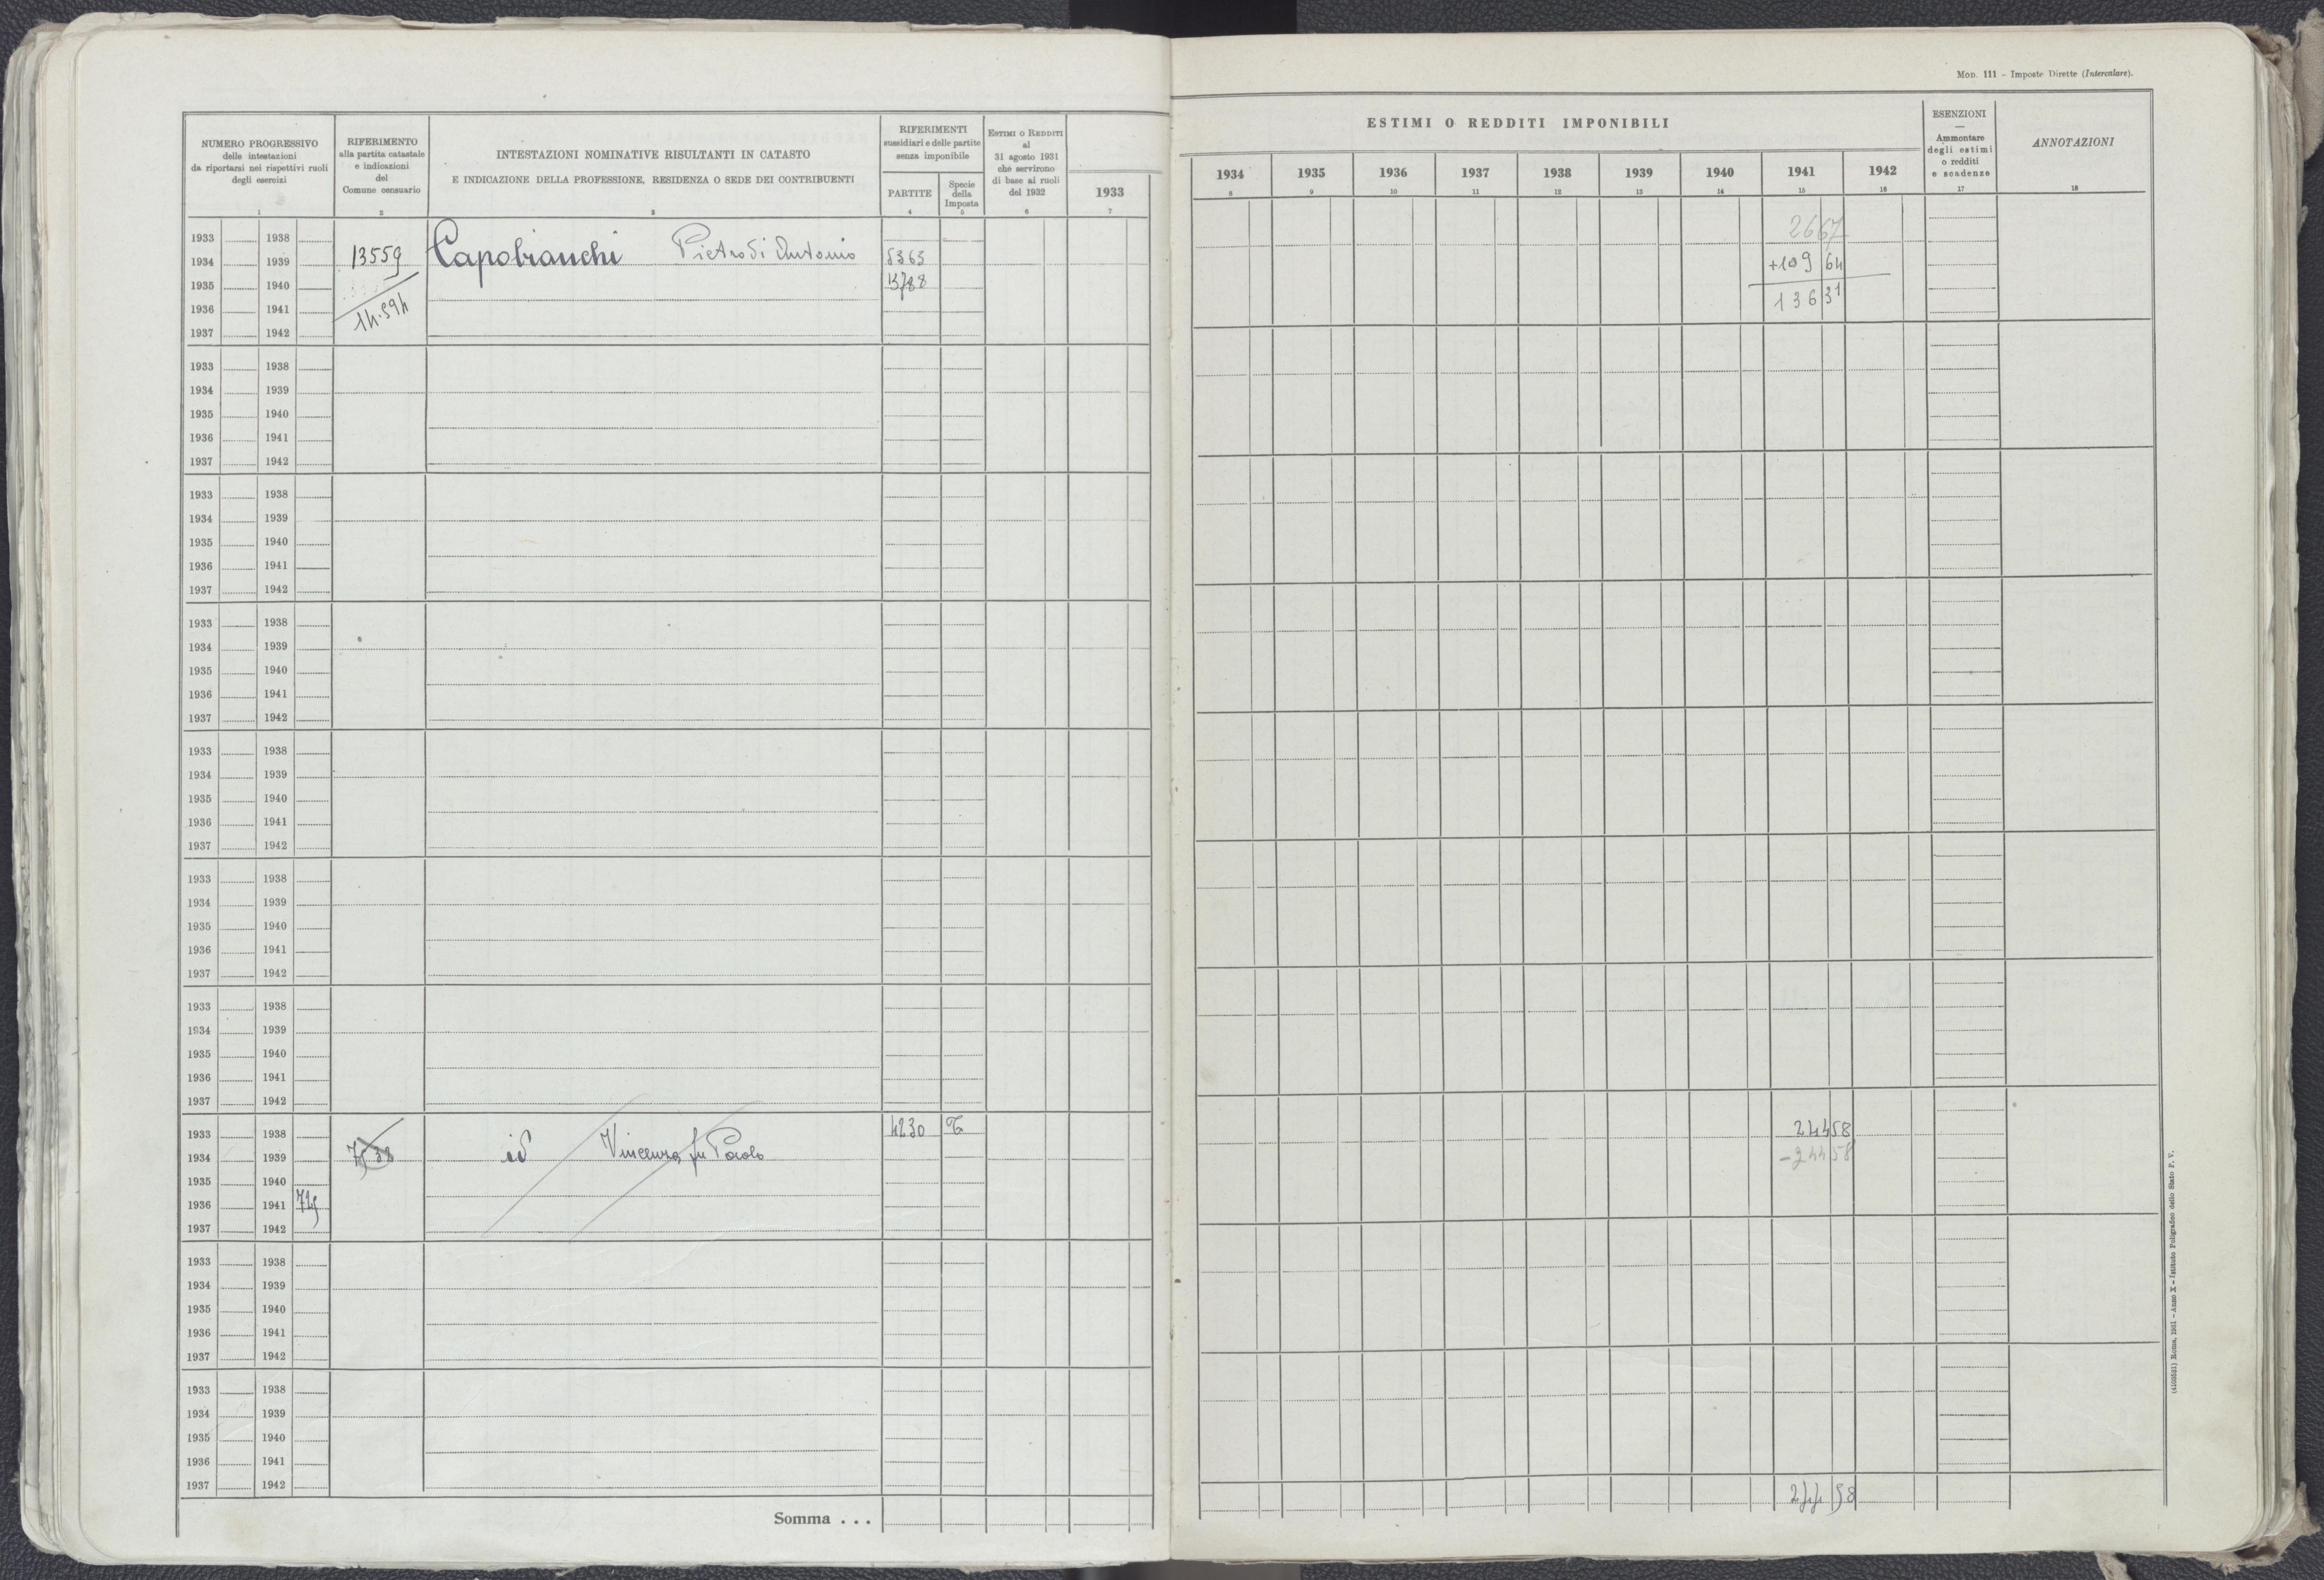 Mod. 111 - Imposte Dirette (Intercalare).
NUMERO PROGRESSIVO
delle intestazioni
da riportarsi nei rispettivi ruoli
degli esercizi
1
RIFERIMENTO
alla partita catastale
e indicazioni
del
Comune censuario
2
INTESTAZIONI NOMINATIVE RISULTANTI IN CATASTO
E INDICAZIONE DELLA PROFESSIONE, RESIDENZA O SEDE DEI CONTRIBUENTI
3
RIFERIMENTI
sussidiari e delle partite
senza imponibile
PARTITE
4
Specie
della
Imposta
5
ESTIMI O REDDITI
al
31 agosto 1931
che servirono
di base ai ruoli
del 1932
6
1933
7
ESTIMI O REDDITI IMPONIBILI
1934 1935 1936 1937 1938 1939 1940 1941 1942
8 9 10 11 12 13 14 15 16
ESENZIONI
Ammontare
degli estimi
o redditi
e scadenze
17
ANNOTAZIONI
18
1933 1938 2667
1934 1939 13559 Capobianchi Pietro di Antonio 5363 +109 64
1935 1940 13788 136 31
1936 1941 14.594
1937 1942
1933 1938
1934 1939
1935 1940
1936 1941
1937 1942
1933 1938
1934 1939
1935 1940
1936 1941
1937 1942
1933 1938
1934 1939
1935 1940
1936 1941
1937 1942
1933 1938
1934 1939
1935 1940
1936 1941
1937 1942
1933 1938
1934 1939
1935 1940
1936 1941
1937 1942
1933 1938
1934 1939
1935 1940
1936 1941
1937 1942
1933 1938 4230 T 244 58
1934 1939 7538 id Vincenzo fu Paolo -244 58
1935 1940
1936 1941 745
1937 1942
1933 1938
1934 1939
1935 1940
1936 1941
1937 1942
1933 1938
1934 1939
1935 1940
1936 1941
1937 1942
Somma . . . 244 58
(4103531) Roma, 1931 - Anno X - Istituto Poligrafico dello Stato P. V.